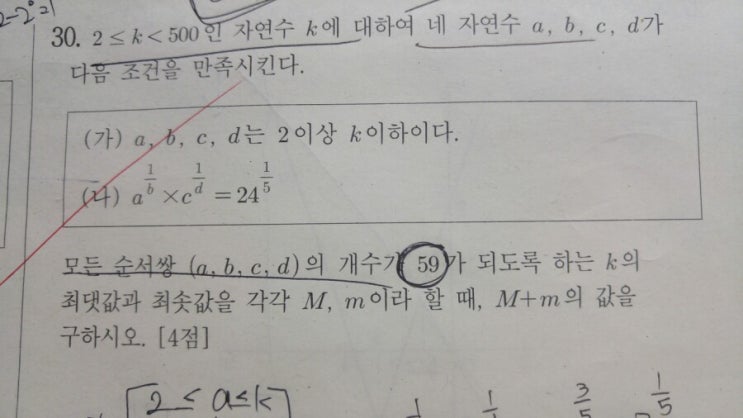 2-2°=1
30. 2 ≤ k < 500인 자연수 k에 대하여 네 자연수 a, b, c, d가
다음 조건을 만족시킨다.
(가) a, b, c, d는 2이상 k이하이다.
(나) a^{1/b} × c^{1/d} = 24^{1/5}
모든 순서쌍 (a, b, c, d)의 개수가 59가 되도록 하는 k의
최댓값과 최솟값을 각각 M, m이라 할 때, M+m의 값을
구하시오. [4점]
2 ≤ a ≤ k
1 1 3/5 1/5